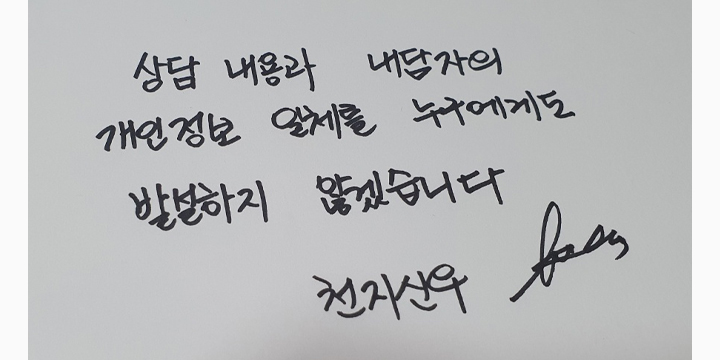 상담 내용과 내담자의
개인정보 일체를 누구에게도
발설하지 않겠습니다
천지산우